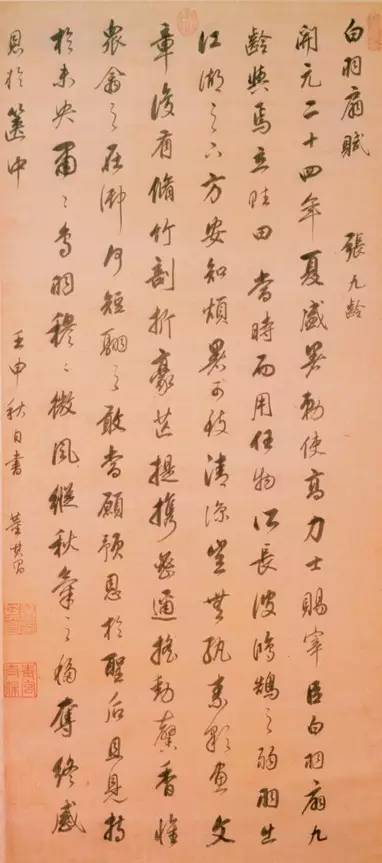 白羽扇賦 張九齡
開元二十四年夏盛暑勅使高力士賜宰臣白羽扇九
齡與焉立賦曰當時而用任物所長彼鴻鵠之弱羽出
江湖之下方安知煩暑可致清涼豈無紈素彩畫文
章復有脩竹剖析豪芒提攜密邇搖動馨香惟
衆之在御何短翮之敢當顧預恩於聖后且見持
於未央肅〻鳥羽穆〻微風縱秋氣之移奪終感
恩於篋中 壬申秋日書 董其昌